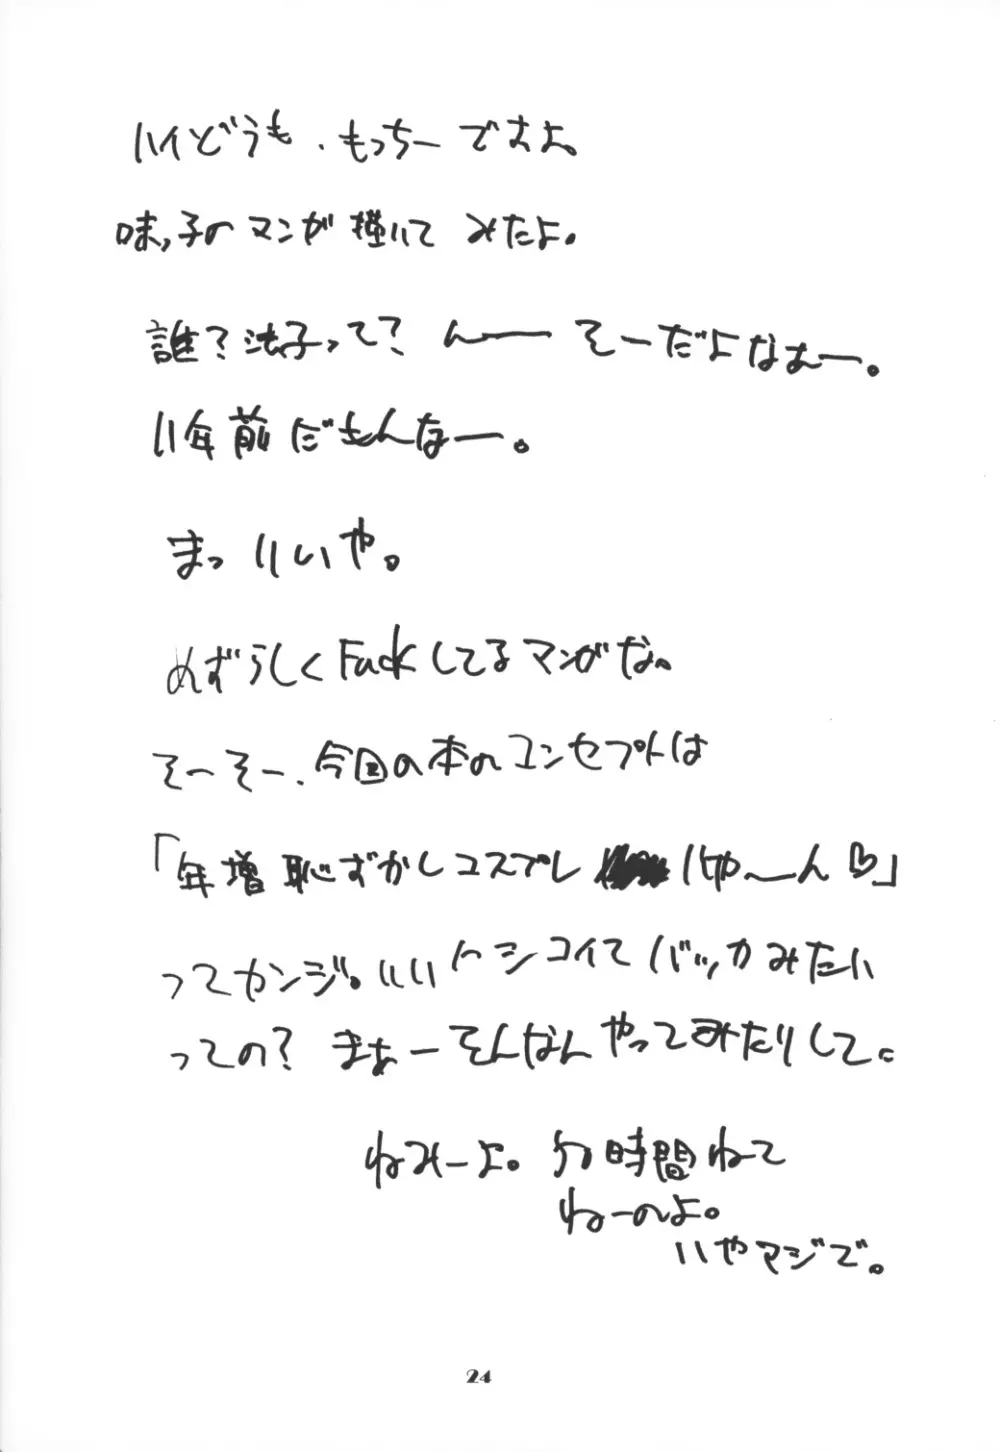 ハイどうも、もっちーですよ。
味っ子のマンガ描いてみたよ。
誰？法子って？んーーそーだよなぁー。
11年前だもんなー。
まっいいや。
めずらしくFuckしてるマンガな。
そーそー、今回の本のコンセプトは
「年増恥ずかしコスプレ いや〜ん♡」
ってカンジ。いい トシコイて バッカみたい
っての？まぁーそんなんやってみたりして。
ねみーよ。 時間ねて
ねーのよ。
いやマジで。
24